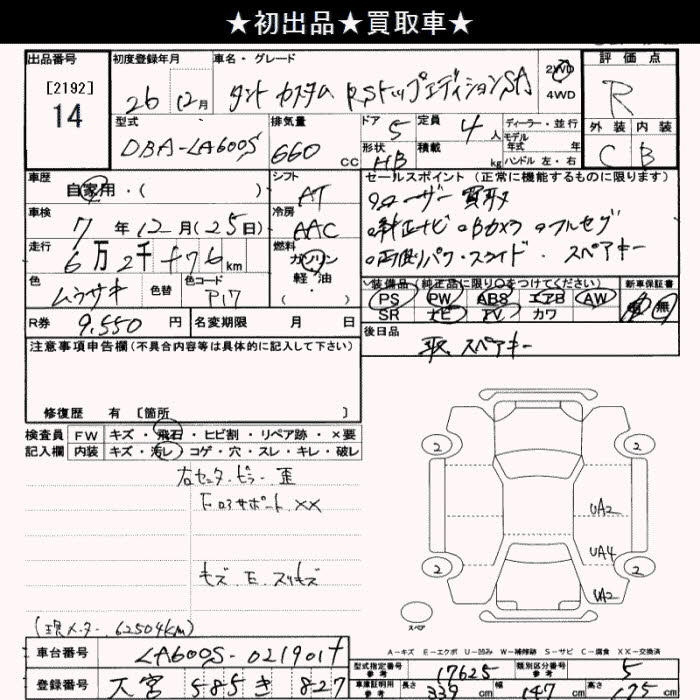 ★初出品★買取車★
出品番号 初度登録年月 車名・グレード 評価点
[2192]
14
26 12月 タント カスタム RSトップエディションSA 2WD 4WD R
型式 排気量 ドア 定員 ディーラー・並行 外装 内装
DBA-LA600S 660cc 5 4人 モデル年式 年 C B
形状 HB 積載 kg ハンドル 左・右
車歴 シフト セールスポイント (正常に機能するものに限ります)
自家用・( ) AT ワンオーナー 買取
車検 冷房 純正ナビ Bカメラ フルセグ
7年12月(25日) AAC 両側パワースライド スペアキー
走行 燃料
6万2千 km ガソリン 軽・油 ( ・ )
装備品 (純正品に限り○をつけてください) 新車保証書
色 ムラサキ 色替 色コード P17 PS PW ABS エアB AW 有 無
SR ナビ TV カワ
R券 9,550円 名変期限 月 日 後日品
スペアキー
注意事項申告欄 (不具合内容等は具体的に記入して下さい)
修復歴 有 [箇所 ]
検査員 FW キズ・飛石・ヒビ割・リペア跡・×要
記入欄 内装 キズ・汚レ・コゲ・穴・スレ・キレ・破レ
右センターピラー 歪
Fロアサポート XX
キズ E スリキズ
2 2
UA2
UA4
2 2
UA2
スペア
(現メーター 62504km)
A-キズ E-エクボ U-凹み W-補修跡 S-サビ C-腐食 XX-交換済
車台番号 LA600S-0219017
型式指定番号 参考 17625 類別区分番号 参考 5
登録番号 大宮 585 き 827
車庫証明用 参考 長さ 339cm 幅 147cm 高さ 175cm